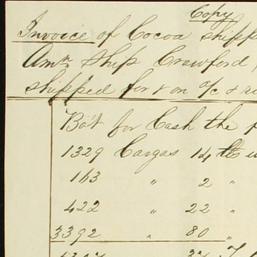 Copy
Invoice of Cocoa shipp
Amn Ship Crawford
shipped for & on a/c & 
Bo't for Cash the
1329 Cargas 14 lb
163 " 2 "
422 " 22 "
3392 " 80 "